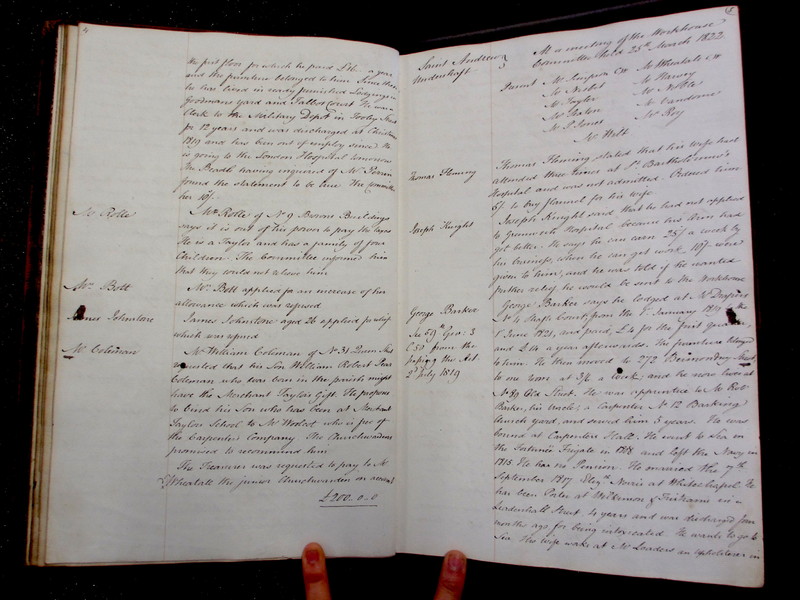 4
the first floor for which he paid a year
and the furniture belonged to him Since then
he has lived in ready furnished Lodgings in
Goodmans yard and Talbot Court. He was a
Clerk to the Military Depôt in Tooley Street
for 12 years and was discharged at Christmas
1819 and has been out of employ since He
is going to the London Hospital tomorrow
The Beadle having enquired of Mr
found the statement to be true The committee
him 10/-
Mr Rolle
Mr Rolle of No 9 Buildings
says it is out of his power to pay the taxes
He is a Taylor and has a family of four
Children. The Committee informed him
that they could not relieve him
Mrs Bott
Mrs Bott applied for an increase of her
allowance which was refused
James Johnstone
James Johnstone aged 26 applied for relief
which was refused
Mr Coleman
Mr William Coleman of No 31 Street
requested that his Son William Robert
Coleman who was born in the parish might
have the Merchant Taylors Gift. He proposes
to bind his Son who has been at Merchant
Taylors School to Mr Wolcot who is free of
the Carpenters Company The Churchwardens
promised to recommend him
The Treasurer was requested to pay to Mr
Wheatale the junior Churchwarden on account
£200..0..0
5
Saint Andrew
Undershaft
At a meeting of the Workhouse
Committee held 25th March 1822
Present Mr Simpson CW Mr Wheatale CW
Mr Nisbet Mr Harvey
Mr Taylor Mr Noble
Mr Mr Vandome
Mr P Jones Mr Roy
Mr Wilt
Thomas Fleming
Thomas Fleming stated that his wife had
attended three times at St Bartholomew's
Hospital and was not admitted. Ordered him
5/- to buy flannel for his wife
Joseph Knight
Joseph Knight said that he had not applied
to Greenwich Hospital because his Arm had
got better. He says he can earn 25/- a week by
his business, when he can get work 10/- were
given to him, and he was told if he wanted
further relief he would be sent to the Workhouse
George Barker
See 59th Geo: 3
C 50 from the
passing the Act
2d July 1819
George Barker says he lodged at Mr Drapers
No 4 Court from the 1 January 1819 to the
1 June 1821, and paid £4 for the first quarter,
and £14 a year afterwards. The furniture belonged
to him. He then moved to 272 Bermondsey Street
to one room at 3/6 a Week, and he now lives at
No 89 Old Street. He was apprentice to Mr Robt
Barker, his Uncle, a Carpenter No 12 Barking
Church yard, and served him 5 years. He was
bound at Carpenters Hall. He went to Sea in
the Fortunée Frigate in and left the Navy in
1815. He has no Pension. He married the 7th
September 1817 Elizth Norris at Whitechapel. He
has been Porter at Wilkinson & in
Leadenhall Street 4 years and was discharged from
months ago for being intoxicated. He wants to go to
Sea. His wife works at Mr Loaders an upholsterer in